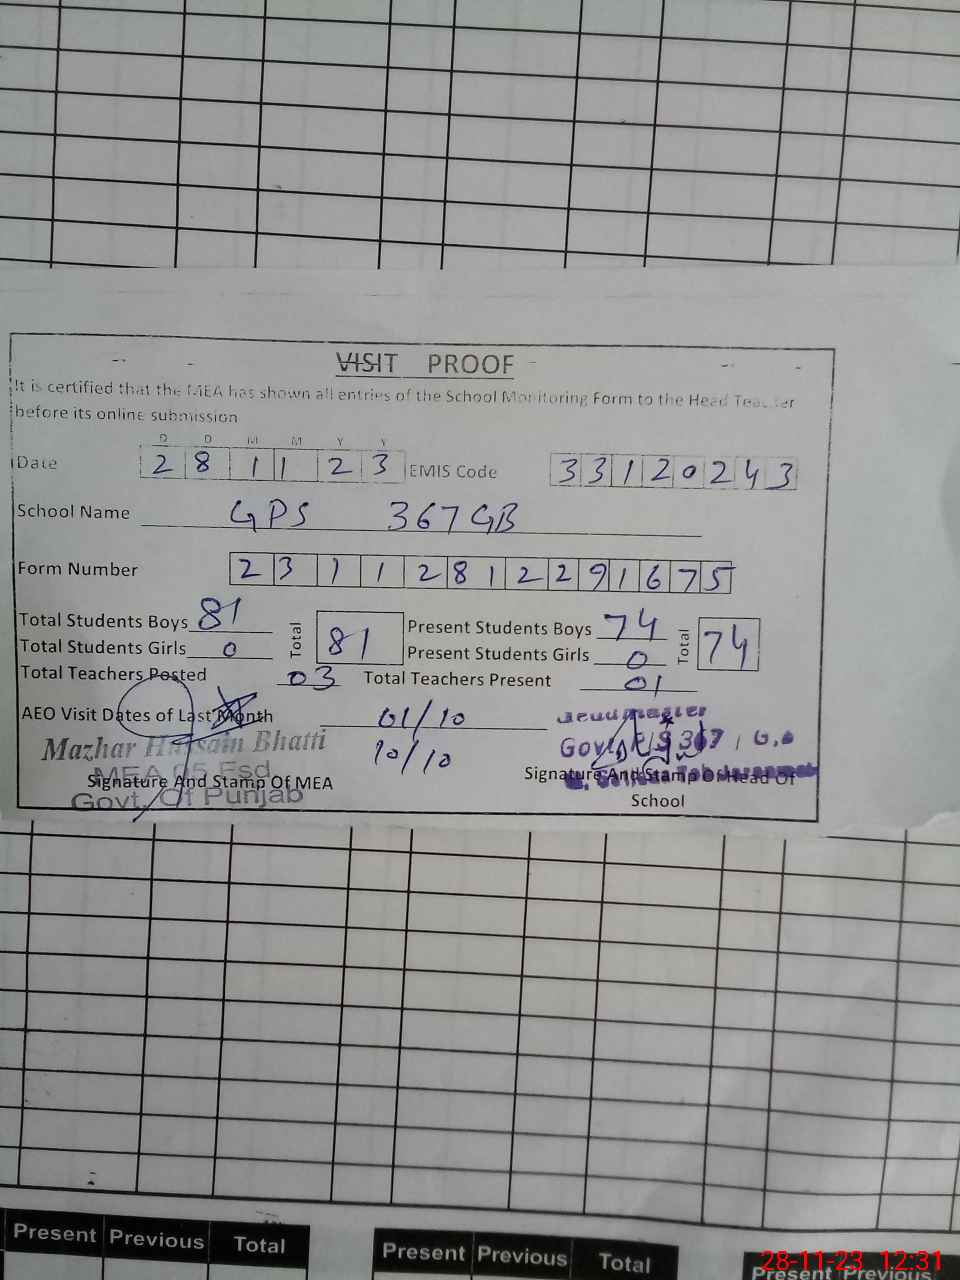 VISIT PROOF
It is certified that the MEA has shown all entries of the School Monitoring Form to the Head Teacher
before its online submission
D D M M Y Y
Date 2 8 1 1 2 3 EMIS Code 3 3 1 2 0 2 4 3
School Name GPS 367 GB
Form Number 2 3 1 1 2 8 1 2 2 9 1 6 7 5
Total Students Boys 81 Total 81 Present Students Boys 74 Total 74
Total Students Girls 0 Present Students Girls 0
Total Teachers Posted 03 Total Teachers Present 01
AEO Visit Dates of Last Month 01/10
10/10
Headmaster
Mazhar Hussain Bhatti
Govt. P/S 367
MEA 05 Fsd
Signature And Stamp Of MEA Signature And Stamp Of Head Of
Govt. Of Punjab School
Present Previous Total Present Previous Total Present Previous
28-11-23 12:31